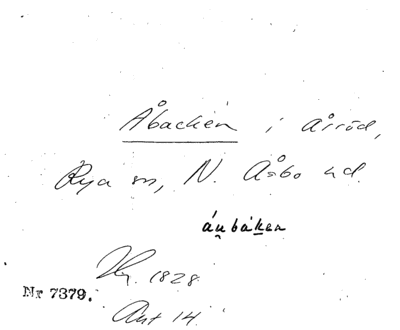 Åbacken i Årröd,
Rya sn, N. Åsbo hd.
áu̯bák̲en
Hy. 1828.
Nr 7379.
Ant 14.